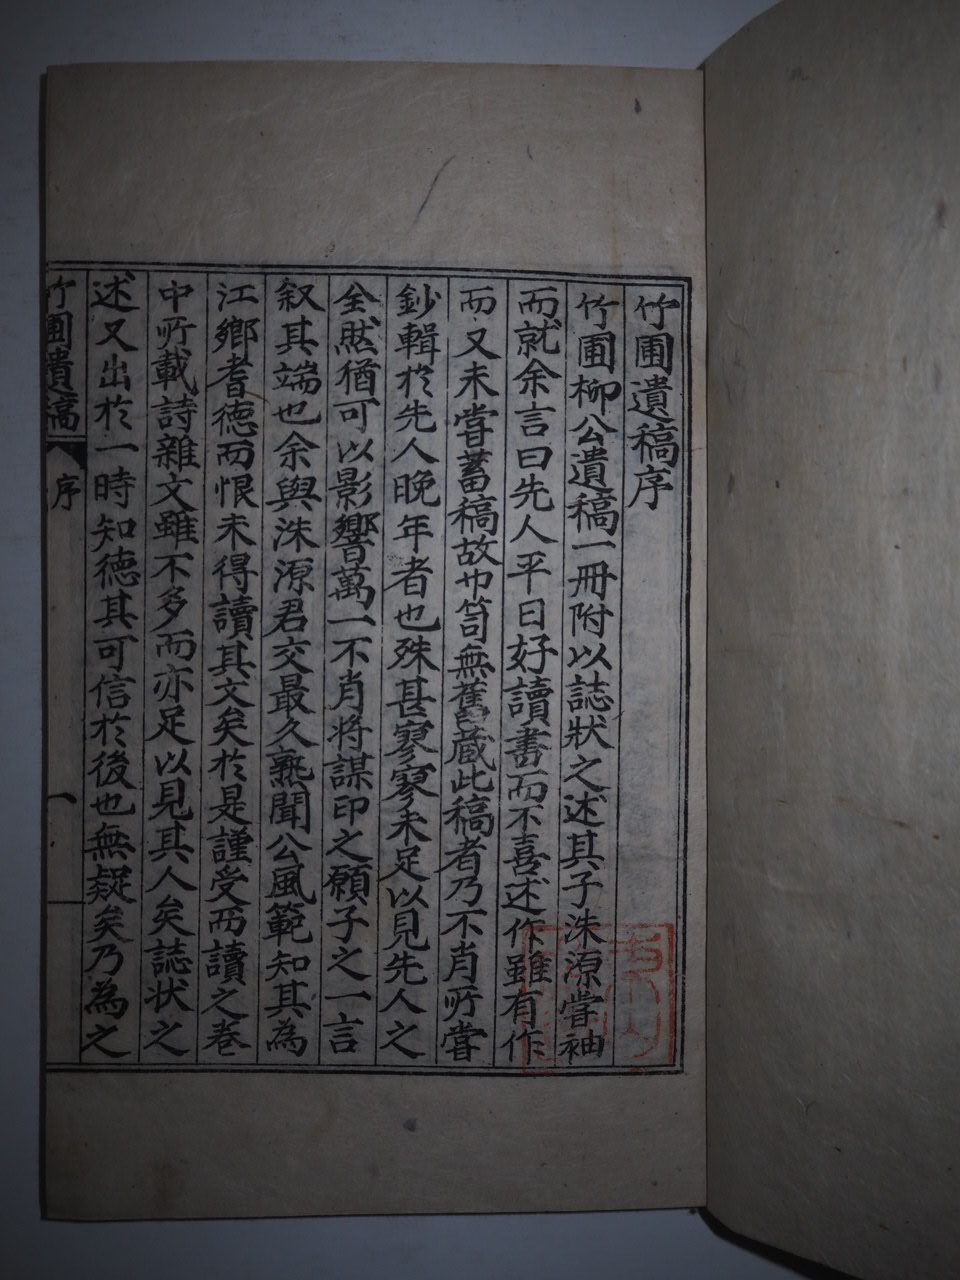 竹圃遺稿序
竹圃柳公遺稿一冊附以誌狀之述其子洙源嘗袖
而就余言曰先人平日好讀書而不喜述作雖有作
而又未嘗蓄稿故巾笥無舊藏此稿者乃不肖所嘗
鈔輯於先人晚年者也殊甚寥寥未足以見先人之
全然猶可以影響萬一不肖將謀印之願子之一言
叙其端也余與洙源君交最久熟聞公風範知其為
江鄉耆德而恨未得讀其文矣於是謹受而讀之卷
中所載詩雜文雖不多而亦足以見其人矣誌狀之
述又出於一時知德其可信於後也無疑矣乃為之
竹圃遺稿 序 一